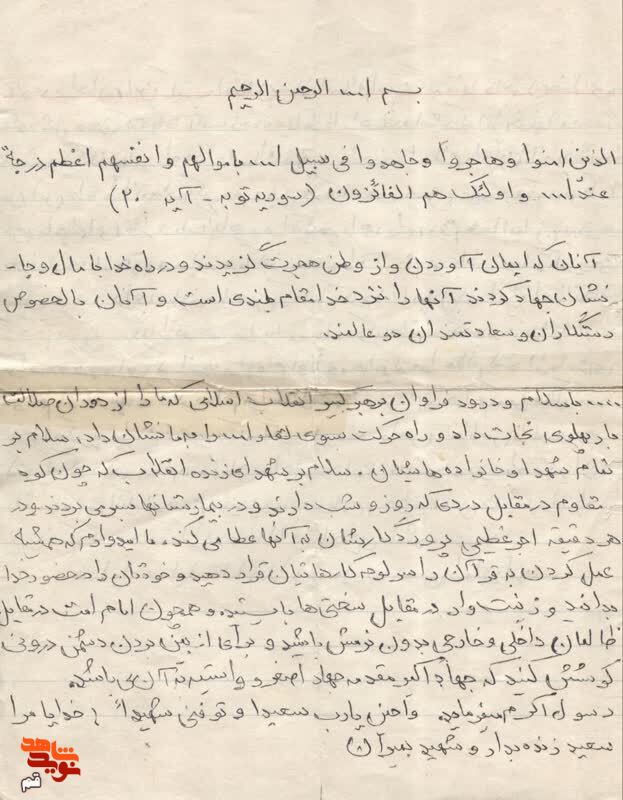 بسم ا... الرحمن الرحیم
الذین امنوا و هاجروا و جاهدوا فی سبیل ا... باموالهم و انفسهم اعظم درجة
عند ا... و اولئک هم الفائزون (سوره توبه - آیه ۲۰)
آنان که ایمان آوردن و از وطن هجرت گزیدند و در راه خدا با مال و جا-
نشان جهاد کردند آنها را نزد خدا مقام بلندی است و آنان بالخصوص
رستگاران و سعادتمندان دو عالمند.
.... با سلام و درود فراوان بر رهبر کبیر انقلاب اسلامی که ما را از دوران ضلالت
بار پهلوی نجات داد و راه حرکت سوی لقاء ا... را به ما نشان داد، سلام بر
تمام شهدا و خانواده هایشان. سلام بر شهدای زنده انقلاب که چون کوه
مقاوم در مقابل دردی که روز و شب دارند و در بیمارستانها بسر می بردند و در
هر دقیقه اجر عظیمی پروردگارشان به آنها عطا می کند. ما امیدوارم که همیشه
عمل کردن به قرآن را سرلوحه کارهایتان قرار دهید و خودتان را در حضور خدا
بدانید و زینت وار در مقابل سختی ها بایستید و همچون امام امت در مقابل
ظالمان داخلی و خارجی بدون نرمش باشید و برای از بین بردن دشمن درونی
کوشش کنید که جهاد اکبر مقدمه جهاد اصغر و وابسته به آن می باشد.
رسول اکرم میفرماید واحینی یارب سعیدا و توفنی شهیدا / خدایا مرا
سعید زنده بدار و شهید بمیران
نوید شاهد
قم